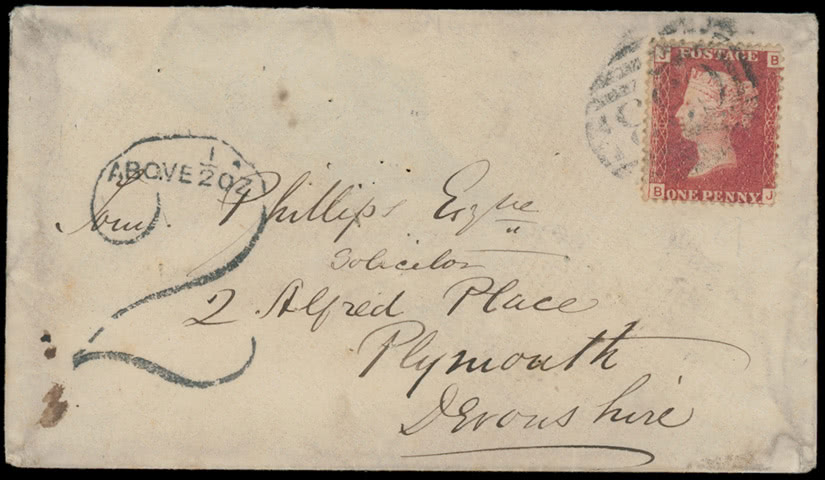 J POSTAGE B
B ONE PENNY J
ABOVE 1/2 OZ
2
Phillips Esqre
Solicitor
2 Alfred Place
Plymouth
Devonshire